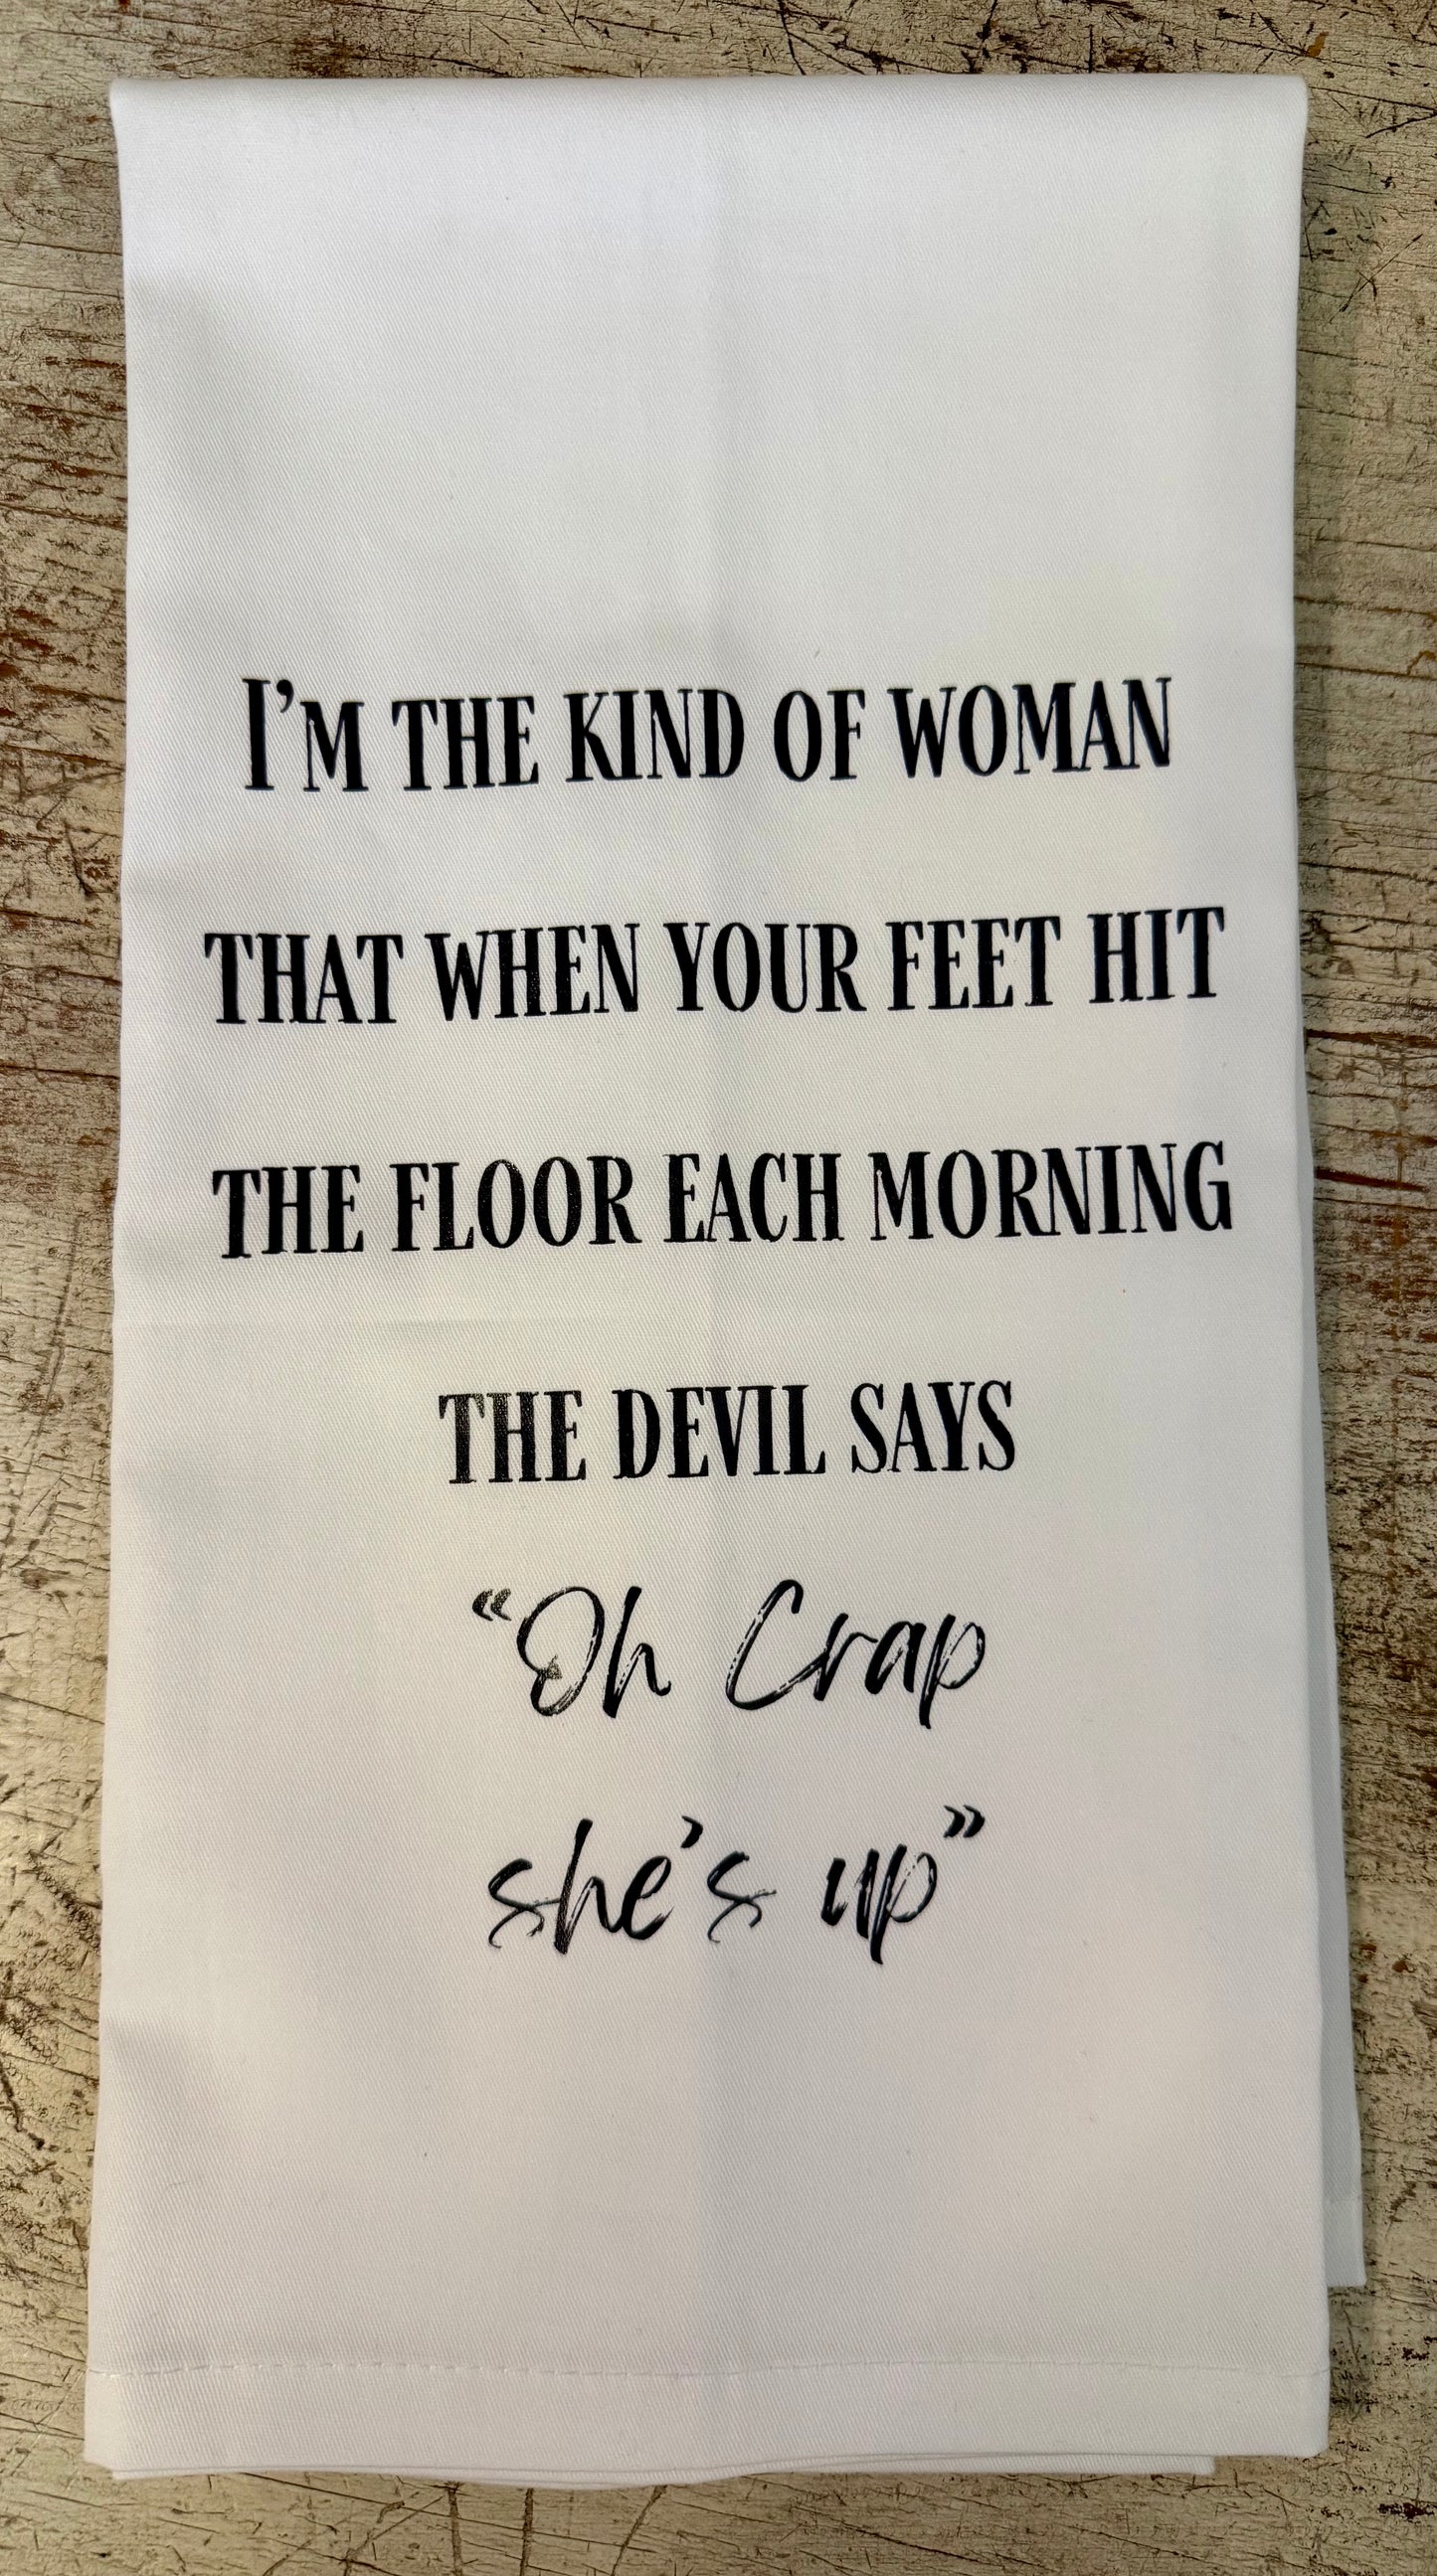 I'M THE KIND OF WOMAN
THAT WHEN YOUR FEET HIT
THE FLOOR EACH MORNING
THE DEVIL SAYS
“Oh Crap
she's up”